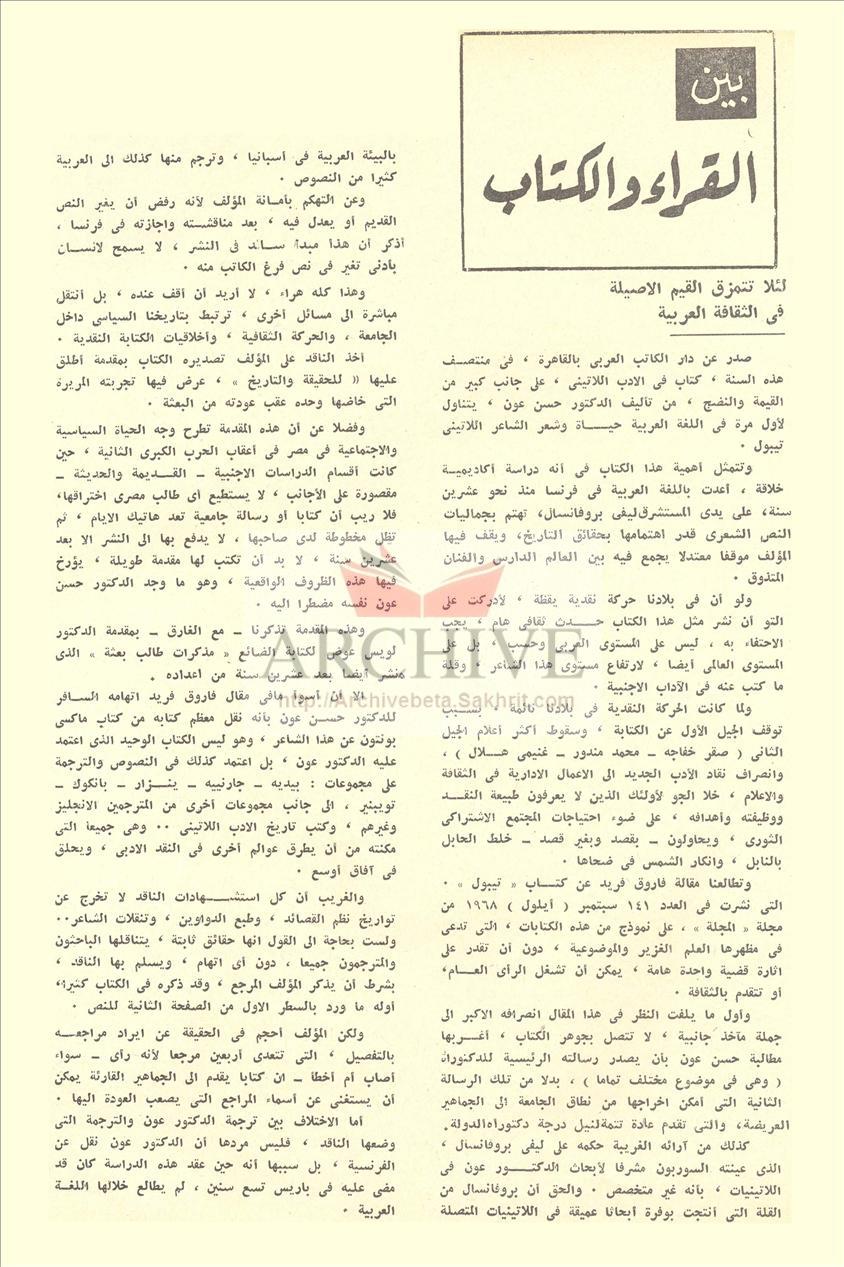 بين
القراء والكتاب
لئلا تتمزق القيم الاصيلة
فى الثقافة العربية
صدر عن دار الكاتب العربى بالقاهرة ، فى منتصف
هذه السنة ، كتاب فى الادب اللاتينى ، على جانب كبير من
القيمة والنضج ، من تأليف الدكتور حسن عون ، يتناول
لأول مرة فى اللغة العربية حيــاة وشعر الشاعر اللاتينى
تيبول .
وتتمثل أهمية هذا الكتاب فى أنه دراسة أكاديميــة
خلاقة ، أعدت باللغة العربية فى فرنسا منذ نحو عشرين
سنة، على يدى المستشرق ليفى بروفانسال، تهتم بجماليات
النص الشعرى قدر اهتمامها بحقائق التاريخ، ويقف فيها
المؤلف موقفا معتدلا يجمع فيه بين العالم الدارس والفنان
المتذوق .
ولو أن فى بلادنا حركة نقدية يقظة ، لأدركت على
التو أن نشر مثل هذا الكتاب حــدث ثقافى هام ، يجب
الاحتفاء به ، ليس على المستوى العربى وحسب ، بل على
المستوى العالمى أيضا ، لارتفاع مستوى هذا الشاعر ، وقلة
ما كتب عنه فى الآداب الاجنبية .
ولما كانت الحركة النقدية فى بلادنا نائمة ، بســبب
توقف الجيل الأول عن الكتابة ، وسقوط أكثر أعلام الجيل
الثانى ( صقر خفاجه ـ محمد مندور ـ غنيمى هــلال ) ،
وانصراف نقاد الأدب الجديد الى الاعمال الادارية فى الثقافة
والاعلام ، خلا الجو لأولئك الذين لا يعرفون طبيعة النقــد
ووظيفته وأهدافه ، على ضوء احتياجات المجتمع الاشتراكى
الثورى ، ويحاولون ـ بقصد وبغير قصد ـ خلط الحابل
بالنابل ، وانكار الشمس فى ضحاها .
وتطالعنا مقالة فاروق فريد عن كتــاب « تيبول » .
التى نشرت فى العدد ١٤١ سبتمبر ( أيلول ) ١٩٦٨ من
مجلة « المجلة » ، على نموذج من هذه الكتابات ، التى تدعى
فى مظهرها العلم الغزير والموضوعية ، دون أن تقدر على
اثارة قضية واحدة هامة ، يمكن أن تشغل الرأى العــام،
أو تتقدم بالثقافة .
وأول ما يلفت النظر فى هذا المقال انصرافه الاكبر الى
جملة مآخذ جانبية ، لا تتصل بجوهر الكتاب ، أغــربها
مطالبة حسن عون بأن يصدر رسالته الرئيسية للدكتوراة
( وهى فى موضوع مختلف تماما ) ، بدلا من تلك الرسالة
الثانية التى أمكن اخراجها من نطاق الجامعة الى الجماهير
العريضة، والتى تقدم عادة تتمة لنيل درجة دكتوراه الدولة.
كذلك من آرائه الغريبة حكمه على ليفى بروفانسال ،
الذى عينته السوربون مشرفا لأبحاث الدكتــور عون فى
اللاتينيات ، بأنه غير متخصص . والحق أن بروفانسال من
القلة التى أنتجت بوفرة أبحاثا عميقة فى اللاتينيات المتصلة
بالبيئة العربية فى أسبانيا ، وترجم منها كذلك الى العربية
كثيرا من النصوص .
وعن التهكم بأمــانة المؤلف لأنه رفض أن يغير النص
القديم أو يعدل فيه ، بعد مناقشــته واجازته فى فرنسا ،
أذكر أن هذا مبدأ ســائد فى النشر ، لا يسمح لانســان
بأدنى تغير فى نص فرغ الكاتب منه .
وهذا كله هراء ، لا أريد أن أقف عنده ، بل أنتقل
مباشرة الى مسائل أخرى ، ترتبط بتاريخنا السياسى داخل
الجامعة ، والحركة الثقافية ، وأخلاقيات الكتابة النقدية .
أخذ الناقد على المؤلف تصديره الكتاب بمقدمة أطلق
عليها « للحقيقة والتاريخ » ، عرض فيها تجربته المريرة
التى خاضها وحده عقب عودته من البعثة .
وفضلا عن أن هذه المقدمة تطرح وجه الحياة السياسية
والاجتماعية فى مصر فى أعقاب الحرب الكبرى الثانية ، حين
كانت أقسام الدراسات الاجنبية ـ القــديمة والحديثة ـ
مقصورة على الأجانب ، لا يستطيع أى طالب مصرى اختراقها،
فلا ريب أن كتابا أو رسالة جامعية تعد هاتيك الايام ، ثم
تظل مخطوطة لدى صاحبها ، لا يدفع بها الى النشر الا بعد
عشرين سنة ، لا بد أن تكتب لها مقدمة طويلة ، يؤرخ
فيها هذه الظروف الواقعية ، وهو ما وجد الدكتور حسن
عون نفسه مضطرا اليه .
وهذه المقدمة تذكرنا ـ مع الفارق ـ بمقدمة الدكتور
لويس عوض لكتابة الضائع « مذكرات طالب بعثة » الذى
نشر أيضا بعد عشرين سنة من اعداده .
الا أن أسوأ مافى مقال فاروق فريد اتهامه السـافر
للدكتور حســن عون بأنه نقل معظم كتابه من كتاب ماكسى
بونتون عن هذا الشاعر ، وهو ليس الكتاب الوحيد الذى اعتمد
عليه الدكتور عون ، بل اعتمد كذلك فى النصوص والترجمة
على مجموعات : بيديه ـ جارنييه ـ ينــزار ـ بانكوك ـ
تويبنير ، الى جانب مجموعات أخرى من المترجمين الانجليز
وغيرهم ، وكتب تاريخ الادب اللاتينى .. وهى جميعا التى
مكنته من أن يطرق عوالم أخرى فى النقد الادبى ، ويحلق
فى آفاق أوسع .
والغريب أن كل استشــهادات الناقد لا تخرج عن
تواريخ نظم القصائد ، وطبع الدواوين ، وتنقلات الشاعر..
ولست بحاجة الى القول انها حقائق ثابتة ، يتناقلها الباحثون
والمترجمون جميعا ، دون أى اتهام ، ويسلم بها الناقد ،
بشرط أن يذكر المؤلف المرجع ، وقد ذكره فى الكتاب كثيرا،
أوله ما ورد بالسطر الاول من الصفحة الثانية للنص .
ولكن المؤلف أحجم فى الحقيقة عن ايراد مراجعــه
بالتفصيل ، التى تتعدى أربعين مرجعا لأنه رأى ـ سواء
أصاب أم أخطأ ـ ان كتابا يقدم الى الجماهير القارئة يمكن
أن يستغنى عن أسماء المراجع التى يصعب العودة اليها .
أما الاختلاف بين ترجمة الدكتور عون والترجمة التى
وضعها الناقد ، فليس مردها أن الدكتور عون نقل عن
الفرنسية ، بل سببها أنه حين عقد هذه الدراسة كان قد
مضى عليه فى باريس تسع سنين ، لم يطالع خلالها اللغــة
العربية .
ARCHIVE
http://Archivebeta.Sakhrit.com